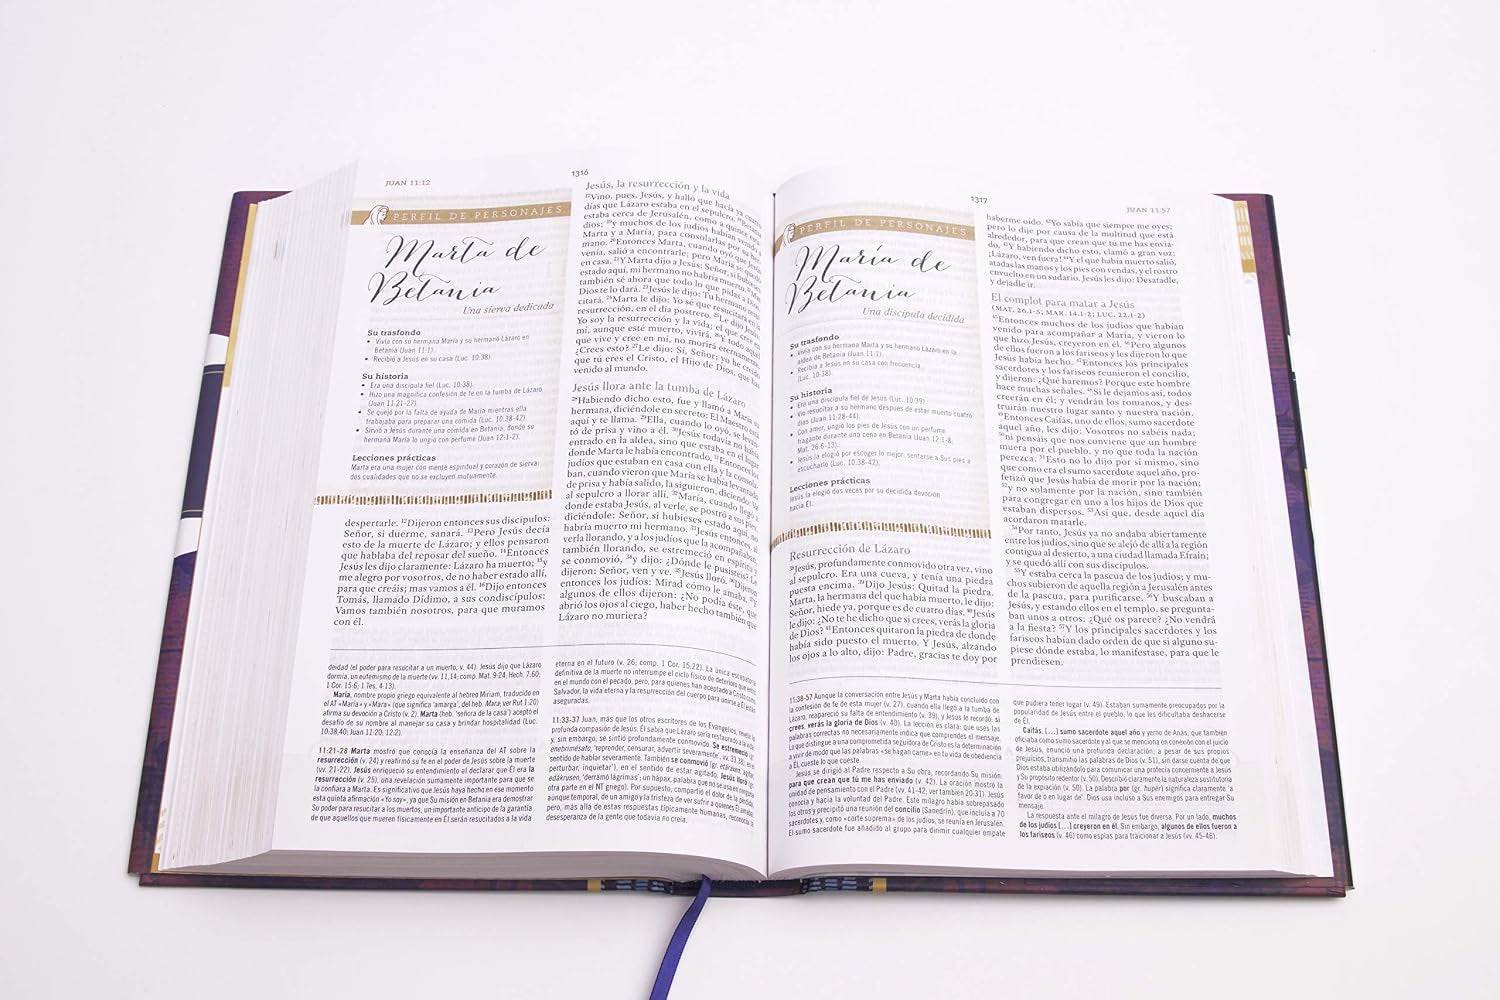 JUAN 11:12
1316
PERFIL DE PERSONAJES
Marta de
Betania
Una sierva dedicada
Su trasfondo
• Vivía con su hermana María y su hermano Lázaro en
Betania (Juan 11:1).
• Recibió a Jesús en su casa (Luc. 10:38).
Su historia
• Era una discípula fiel (Luc. 10:38).
• Hizo una magnífica confesión de fe en la tumba de Lázaro
(Juan 11:21-27).
• Se quejó por la falta de ayuda de María mientras ella
trabajaba para preparar una comida (Luc. 10:38-42).
• Sirvió a Jesús durante una comida en Betania, donde su
hermana María lo ungió con perfume (Juan 12:1-2).
Lecciones prácticas
Marta era una mujer con mente espiritual y corazón de sierva:
dos cualidades que no se excluyen mutuamente.
despertarle. 12Dijeron entonces sus discípulos:
Señor, si duerme, sanará. 13Pero Jesús decía
esto de la muerte de Lázaro; y ellos pensaron
que hablaba del reposar del sueño. 14Entonces
Jesús les dijo claramente: Lázaro ha muerto; 15y
me alegro por vosotros, de no haber estado allí,
para que creáis; mas vamos a él. 16Dijo entonces
Tomás, llamado Dídimo, a sus condiscípulos:
Vamos también nosotros, para que muramos
con él.
Jesús, la resurrección y la vida
17Vino, pues, Jesús, y halló que hacía ya cuatro
días que Lázaro estaba en el sepulcro. 18Betania
estaba cerca de Jerusalén, como a quince esta-
dios; 19y muchos de los judíos habían venido a
Marta y a María, para consolarlas por su her-
mano. 20Entonces Marta, cuando oyó que Jesús
venía, salió a encontrarle; pero María se quedó
en casa. 21Y Marta dijo a Jesús: Señor, si hubieses
estado aquí, mi hermano no habría muerto. 22Mas
también sé ahora que todo lo que pidas a Dios,
Dios te lo dará. 23Jesús le dijo: Tu hermano resu-
citará. 24Marta le dijo: Yo sé que resucitará en la
resurrección, en el día postrero. 25Le dijo Jesús:
Yo soy la resurrección y la vida; el que cree en
mí, aunque esté muerto, vivirá. 26Y todo aquel
que vive y cree en mí, no morirá eternamente.
¿Crees esto? 27Le dijo: Sí, Señor; yo he creído
que tú eres el Cristo, el Hijo de Dios, que has
venido al mundo.
Jesús llora ante la tumba de Lázaro
28Habiendo dicho esto, fue y llamó a María su
hermana, diciéndole en secreto: El Maestro está
aquí y te llama. 29Ella, cuando lo oyó, se levan-
tó de prisa y vino a él. 30Jesús todavía no había
entrado en la aldea, sino que estaba en el lugar
donde Marta le había encontrado. 31Entonces los
judíos que estaban en casa con ella y la consola-
ban, cuando vieron que María se había levantado
de prisa y había salido, la siguieron, diciendo: Va
al sepulcro a llorar allí. 32María, cuando llegó a
donde estaba Jesús, al verle, se postró a sus pies,
diciéndole: Señor, si hubieses estado aquí, no
habría muerto mi hermano. 33Jesús entonces, al
verla llorando, y a los judíos que la acompañaban,
también llorando, se estremeció en espíritu y
se conmovió, 34y dijo: ¿Dónde le pusisteis? Le
dijeron: Señor, ven y ve. 35Jesús lloró. 36Dijeron
entonces los judíos: Mirad cómo le amaba. 37Y
algunos de ellos dijeron: ¿No podía éste, que
abrió los ojos al ciego, haber hecho también que
Lázaro no muriera?
deidad (el poder para resucitar a un muerto, v. 44). Jesús dijo que Lázaro
dormía, un eufemismo de la muerte (vv. 11,14, comp. Mat. 9:24; Hech. 7:60;
1 Cor. 15:6; 1 Tes. 4:13).
María, nombre propio griego equivalente al hebreo Miriam, traducido en
el AT «María» y «Mara» (que significa 'amarga', del heb. Mara; ver Rut 1:20)
afirma su devoción a Cristo (v. 2). Marta (heb. 'señora de la casa') aceptó el
desafío de su nombre al manejar su casa y brindar hospitalidad (Luc.
10:38,40; Juan 11:20; 12:2).
11:21-28 Marta mostró que conocía la enseñanza del AT sobre la
resurrección (v. 24) y reafirmó su fe en el poder de Jesús sobre la muerte
(vv. 21-22). Jesús enriqueció su entendimiento al declarar que Él era la
resurrección (v. 25), una revelación sumamente importante para que se
la confiara a Marta. Es significativo que Jesús haya hecho en ese momento
esta quinta afirmación «Yo soy», ya que Su misión en Betania era demostrar
Su poder para resucitar a los muertos, un importante anticipo de la garantía
de que aquellos que mueren físicamente en Él serán resucitados a la vida
eterna en el futuro (v. 26; comp. 1 Cor. 15:22). La única escapatoria
definitiva de la muerte no interrumpe el ciclo físico de deterioro que entró
en el mundo con el pecado, pero, para quienes han aceptado a Cristo como
Salvador, la vida eterna y la resurrección del cuerpo para unirse a Él están
aseguradas.
11:33-37 Juan, más que los otros escritores de los Evangelios, reveló la
profunda compasión de Jesús. Él sabía que Lázaro sería restaurado a la vida,
y sin embargo, se sintió profundamente conmovido. Se estremeció (gr.
enebrimésato, 'reprender, censurar, advertir severamente', vv. 33,38), en el
sentido de hablar severamente. También se conmovió (gr. etáraxen, 'agitar,
perturbar, inquietar'), en el sentido de estar agitado. Jesús lloró (gr.
edákrusen, 'derramó lágrimas'; un hápax, palabra que no se usa en ninguna
otra parte en el NT griego). Por supuesto, compartió el dolor de la pérdida,
aunque temporal, de un amigo y la tristeza de ver sufrir a quienes Él amaba,
pero, más allá de estas respuestas típicamente humanas, reconocía la
desesperanza de la gente que todavía no creía.
1317
JUAN 11:57
PERFIL DE PERSONAJES
María de
Betania
Una discípula decidida
Su trasfondo
• Vivía con su hermana Marta y su hermano Lázaro en la
aldea de Betania (Juan 11:1).
• Recibía a Jesús en su casa con frecuencia
(Luc. 10:38).
Su historia
• Era una discípula fiel de Jesús (Luc. 10:39).
• Vio resucitar a su hermano después de estar muerto cuatro
días (Juan 11:28-44).
• Con amor, ungió los pies de Jesús con un perfume
fragante durante una cena en Betania (Juan 12:1-8;
Mat. 26:6-13).
• Jesús la elogió por escoger lo mejor: sentarse a Sus pies a
escucharlo (Luc. 10:38-42).
Lecciones prácticas
Jesús la elogió dos veces por su decidida devoción
hacia Él.
Resurrección de Lázaro
38Jesús, profundamente conmovido otra vez, vino
al sepulcro. Era una cueva, y tenía una piedra
puesta encima. 39Dijo Jesús: Quitad la piedra.
Marta, la hermana del que había muerto, le dijo:
Señor, hiede ya, porque es de cuatro días. 40Jesús
le dijo: ¿No te he dicho que si crees, verás la gloria
de Dios? 41Entonces quitaron la piedra de donde
había sido puesto el muerto. Y Jesús, alzando
los ojos a lo alto, dijo: Padre, gracias te doy por
haberme oído. 42Yo sabía que siempre me oyes;
pero lo dije por causa de la multitud que está
alrededor, para que crean que tú me has envia-
do. 43Y habiendo dicho esto, clamó a gran voz:
¡Lázaro, ven fuera! 44Y el que había muerto salió,
atadas las manos y los pies con vendas, y el rostro
envuelto en un sudario. Jesús les dijo: Desatadle,
y dejadle ir.
El complot para matar a Jesús
(MAT. 26.1-5; MAR. 14.1-2; LUC. 22.1-2)
45Entonces muchos de los judíos que habían
venido para acompañar a María, y vieron lo
que hizo Jesús, creyeron en él. 46Pero algunos
de ellos fueron a los fariseos y les dijeron lo que
Jesús había hecho. 47Entonces los principales
sacerdotes y los fariseos reunieron el concilio,
y dijeron: ¿Qué haremos? Porque este hombre
hace muchas señales. 48Si le dejamos así, todos
creerán en él; y vendrán los romanos, y des-
truirán nuestro lugar santo y nuestra nación.
49Entonces Caifás, uno de ellos, sumo sacerdote
aquel año, les dijo: Vosotros no sabéis nada;
50ni pensáis que nos conviene que un hombre
muera por el pueblo, y no que toda la nación
perezca. 51Esto no lo dijo por sí mismo, sino
que como era el sumo sacerdote aquel año, pro-
fetizó que Jesús había de morir por la nación;
52y no solamente por la nación, sino también
para congregar en uno a los hijos de Dios que
estaban dispersos. 53Así que, desde aquel día
acordaron matarle.
54Por tanto, Jesús ya no andaba abiertamente
entre los judíos, sino que se alejó de allí a la región
contigua al desierto, a una ciudad llamada Efraín;
y se quedó allí con sus discípulos.
55Y estaba cerca la pascua de los judíos; y mu-
chos subieron de aquella región a Jerusalén antes
de la pascua, para purificarse. 56Y buscaban a
Jesús, y estando ellos en el templo, se pregunta-
ban unos a otros: ¿Qué os parece? ¿No vendrá
a la fiesta? 57Y los principales sacerdotes y los
fariseos habían dado orden de que si alguno su-
piese dónde estaba, lo manifestase, para que le
prendiesen.
11:38-57 Aunque la conversación entre Jesús y Marta había concluido con
la confesión de fe de esta mujer (v. 27), cuando ella llegó a la tumba de
Lázaro, reapareció su falta de entendimiento (v. 39), y Jesús le recordó: si
crees, verás la gloria de Dios (v. 40). La lección es clara: que uses las
palabras correctas no necesariamente indica que comprendes el mensaje.
Lo que distingue a una comprometida seguidora de Cristo es la determinación
a vivir de modo que las palabras «se hagan carne» en tu vida de obediencia
a Él, cueste lo que cueste.
Jesús se dirigió al Padre respecto a Su obra, recordando Su misión:
para que crean que tú me has enviado (v. 42). La oración mostró la
unidad de pensamiento con el Padre (vv. 41-42; ver también 20-31). Jesús
conocía y hacía la voluntad del Padre. Este milagro había sobrepasado
los otros y precipitó una reunión del concilio (Sanedrín), que incluía a 70
sacerdotes y, como «corte suprema» de los judíos, se reunía en Jerusalén.
El sumo sacerdote fue añadido al grupo para dirimir cualquier empate
que pudiera tener lugar (v. 49). Estaban sumamente preocupados por la
popularidad de Jesús entre el pueblo, lo que les dificultaba deshacerse
de Él.
Caifás, [...] sumo sacerdote aquel año y yerno de Anás, que también
oficiaba como sumo sacerdote y al que se menciona en conexión con el juicio
de Jesús, enunció una profunda declaración: a pesar de sus propios
prejuicios, transmitió las palabras de Dios (v. 51), sin darse cuenta de que
Dios estaba utilizándolo para comunicar una profecía concerniente a Jesús
y Su propósito redentor (v. 50). Describió claramente la naturaleza sustitutoria
de la expiación (v. 50). La palabra por (gr. hupér) significa claramente 'a
favor de o en lugar de'. Dios usa incluso a Sus enemigos para entregar Su
mensaje.
La respuesta ante el milagro de Jesús fue diversa. Por un lado, muchos
de los judíos [...] creyeron en él. Sin embargo, algunos de ellos fueron a
los fariseos (v. 46) como espías para traicionar a Jesús (vv. 45-46).